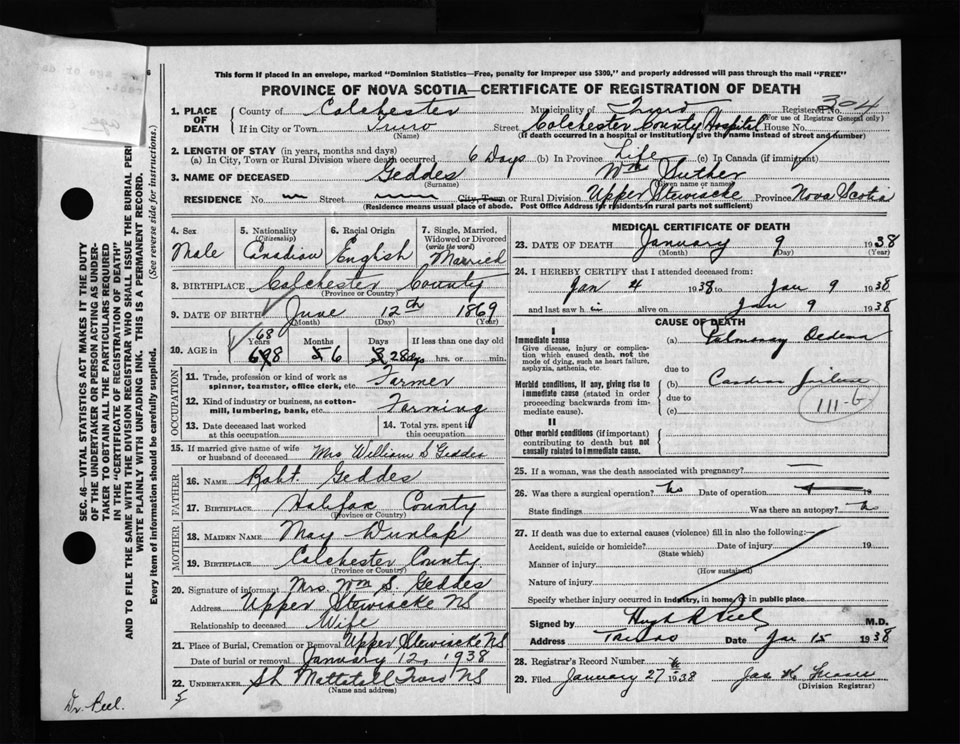 This form if placed in an envelope, marked "Dominion Statistics—Free, penalty for improper use $300," and properly addressed will pass through the mail "FREE"
PROVINCE OF NOVA SCOTIA—CERTIFICATE OF REGISTRATION OF DEATH
1. PLACE OF DEATH
County of Colchester Municipality of Truro Registered No. 304
(Name) (For use of Registrar General only)
If in City or Town Truro Street Colchester County Hospital House No.
(Name) (If death occurred in a hospital or institution, give the name instead of street and number)
2. LENGTH OF STAY (in years, months and days)
(a) In City, Town or Rural Division where death occurred 6 Days (b) In Province Life (c) In Canada (if immigrant)
3. NAME OF DECEASED Geddes Wm Suther
(Surname) (Given name or names)
RESIDENCE No. Street City, Town or Rural Division Upper Stewiacke Province Nova Scotia
(Residence means usual place of abode. Post Office Address for residents in rural parts not sufficient)
4. Sex
Male
5. Nationality
(Citizenship)
Canadian
6. Racial Origin
English
7. Single, Married, Widowed or Divorced
(write the word)
Married
8. BIRTHPLACE Colchester County
(Province or Country)
9. DATE OF BIRTH June 12th 1869
(Month) (Day) (Year)
10. AGE in
Years Months Days If less than one day old
68 6 28 days hrs. or min.
OCCUPATION
11. Trade, profession or kind of work as spinner, teamster, office clerk, etc. Farmer
12. Kind of industry or business, as cotton-mill, lumbering, bank, etc. Farming
13. Date deceased last worked at this occupation
14. Total yrs. spent in this occupation
15. If married give name of wife or husband of deceased Mrs William S Geddes
FATHER
16. NAME Robt. Geddes
17. BIRTHPLACE Halifax County
(Province or Country)
MOTHER
18. MAIDEN NAME May Dunlap
19. BIRTHPLACE Colchester County.
(Province or Country)
20. Signature of informant Mrs. Wm S. Geddes
Address Upper Stewiacke NS
Relationship to deceased Wife
21. Place of Burial, Cremation or Removal Upper Stewiacke NS
Date of burial or removal January 12, 1938
22. UNDERTAKER Mattatall Truro NS
(Name and address)
MEDICAL CERTIFICATE OF DEATH
23. DATE OF DEATH January 9 1938
(Month) (Day) (Year)
24. I HEREBY CERTIFY that I attended deceased from:
Jan 4 1938 to Jan 9 1938
and last saw h im alive on Jan 9 1938
CAUSE OF DEATH
I
Immediate cause
Give disease, injury or complication which caused death, not the mode of dying, such as heart failure, asphyxia, asthenia, etc.
(a) Pulmonary Oedema
due to
Morbid conditions, if any, giving rise to immediate cause (stated in order proceeding backwards from immediate cause).
(b) Cardiac failure
due to
(c)
111-G
II
Other morbid conditions (if important) contributing to death but not causally related to immediate cause.
25. If a woman, was the death associated with pregnancy? —
26. Was there a surgical operation? No Date of operation 19
State findings Was there an autopsy? No
27. If death was due to external causes (violence) fill in also the following:—
Accident, suicide or homicide? Date of injury 19
(State which)
Manner of injury
(How sustained)
Nature of injury
Specify whether injury occurred in industry, in home, or in public place
Signed by Hugh R Peel M.D.
Address Truro Date Jan 15 1938
28. Registrar's Record Number
29. Filed January 27 1938 Jas
(Division Registrar)
SEC. 46—VITAL STATISTICS ACT MAKES IT THE DUTY
OF THE UNDERTAKER OR PERSON ACTING AS UNDERTAKER TO OBTAIN ALL THE PARTICULARS REQUIRED
IN THE "CERTIFICATE OF REGISTRATION OF DEATH"
AND TO FILE THE SAME WITH THE DIVISION REGISTRAR WHO SHALL ISSUE THE BURIAL PER
WRITE PLAINLY WITH UNFADING INK. THIS IS A PERMANENT RECORD.
Every item of information should be carefully supplied. (See reverse side for instructions.)
Dr. Peel.
5